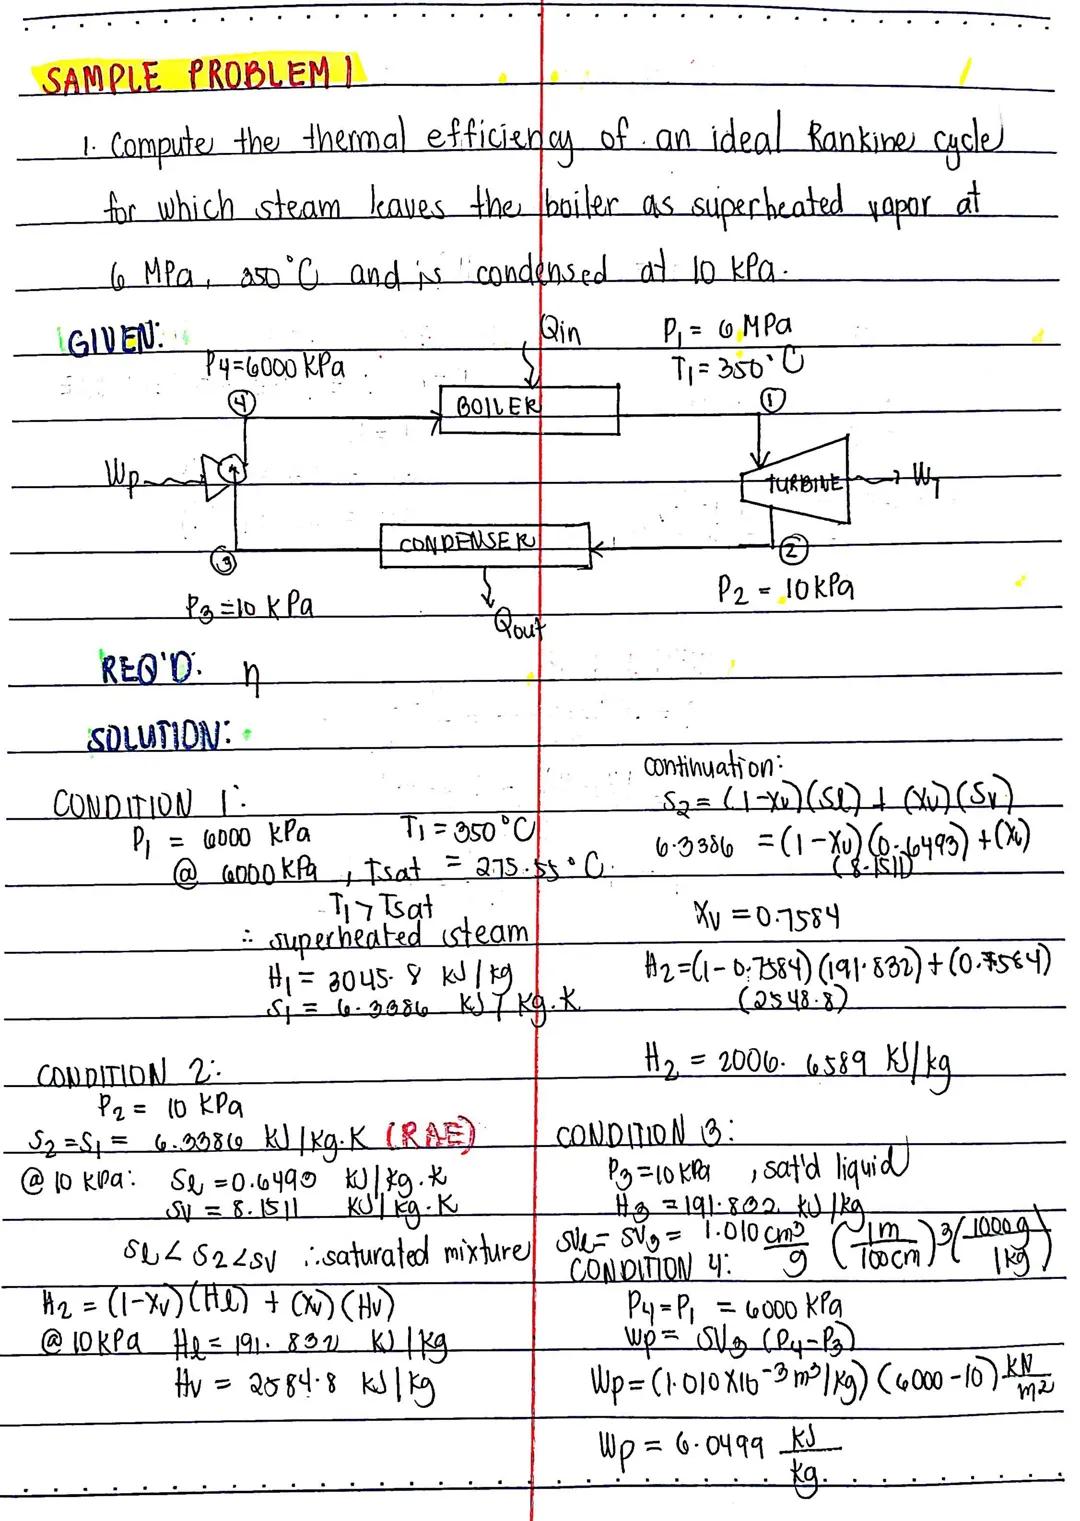 SAMPLE PROBLEM 1
1. Compute the thermal efficiency of an ideal Rankine cycle
for which steam leaves the boiler as superheated vapor at
6 MPa, 350°C and is condensed at 10 kPa.
GIVEN:
P4=6000 KPa
Qin
P1 = 6 MPa
T1 = 350°C
4
BOILER
1
Wp
TURBINE
WT
3
CONDENSER
2
P3=10 KPa
Qout
P2 = 10KPa
REQ'D: η
SOLUTION:
CONDITION 1:
P1 = 6000 KPa T1 = 350°C
@ 6000 KPa, Tsat = 275.55°C
T1 > Tsat
∴ superheated steam
H1 = 3045.8 KJ/kg
S1 = 6.3386 KJ/kg.K
CONDITION 2:
P2 = 10 KPa
S2=S1 = 6.3386 KJ/kg.K (RAE)
@ 10 kPa: Sl = 0.6493 KJ/kg.K
Sv = 8.1511 KJ/kg.K
Sl < S2 < Sv ∴ saturated mixture
H2 = (1-Xv)(Hl) + (Xv)(Hv)
@ 10KPa Hl = 191.832 KJ/kg
Hv = 2584.8 KJ/kg
continuation:
S2 = (1-Xv)(Sl) + (Xv)(Sv)
6.3386 = (1-Xv)(0.6493) + (Xv)
(8.1511)
Xv = 0.7584
H2 = (1-0.7584)(191.832) + (0.7584)
(2548.8)
H2 = 2006.6589 KJ/kg
CONDITION 3:
P3 = 10 KPa, sat'd liquid
H3 = 191.832 KJ/kg
SVl = SV3 = 1.010 cm³/g (1m/100cm)³ (1000g/1kg)
CONDITION 4:
P4 = P1 = 6000 KPa
Wp = SV3 (P4-P3)
Wp = (1.010X10⁻³ m³/kg) (6000-10) kN/m²
Wp = 6.0499 KJ/kg